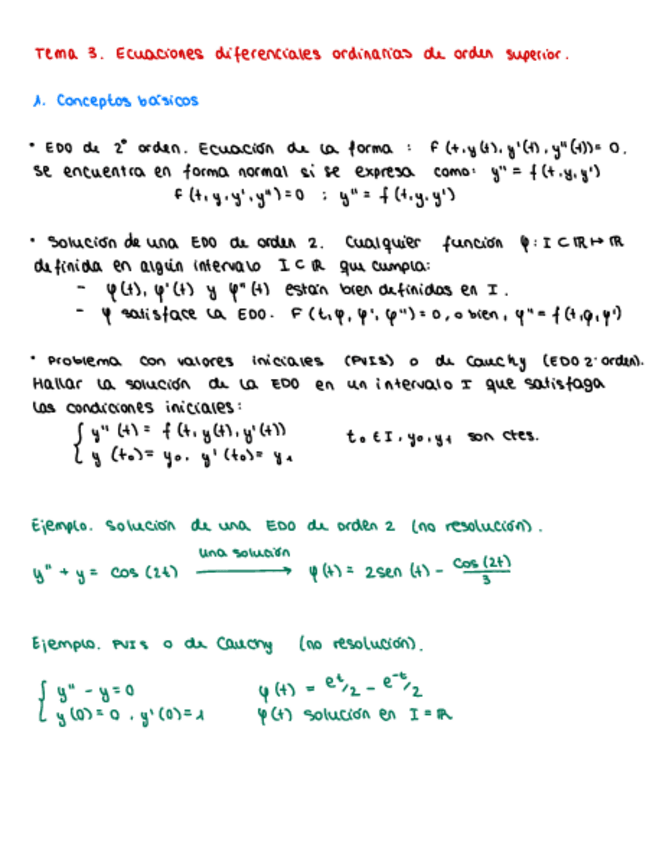 Tema 3. Ecuaciones diferenciales ordinarias de orden superior.
1. Conceptos básicos
• EDO de 2º orden. Ecuación de la forma : F(t,y(t),y'(t),y"(t))=0.
se encuentra en forma normal si se expresa como: y" = f(t,y,y')
F(t,y,y',y")=0 ; y" = f(t,y,y')
• Solución de una EDO de orden 2. Cualquier función φ: I⊂ℝ↦ℝ
definida en algún intervalo I⊂ℝ que cumpla:
- φ(t), φ'(t) y φ"(t) están bien definidas en I.
- φ satisface la EDO. F(t,φ,φ',φ")=0, o bien, φ"=f(t,φ,φ')
• Problema con valores iniciales (PVIs) o de Cauchy (EDO 2º orden).
Hallar la solución de la EDO en un intervalo I que satisfaga
las condiciones iniciales:
{ y"(t) = f(t,y(t),y'(t)) t₀ ∈ I, y₀, y₁ son ctes.
y(t₀)= y₀, y'(t₀)= y₁
Ejemplo. Solución de una EDO de orden 2 (no resolución).
una solución
y" + y = cos(2t) ⟶ φ(t) = 2sen(t) - cos(2t)/3
Ejemplo. PVIs o de Cauchy (no resolución).
{ y" - y = 0 φ(t) = eᵗ/2 - e⁻ᵗ/2
y(0)=0, y'(0)=1 φ(t) solución en I = ℝ